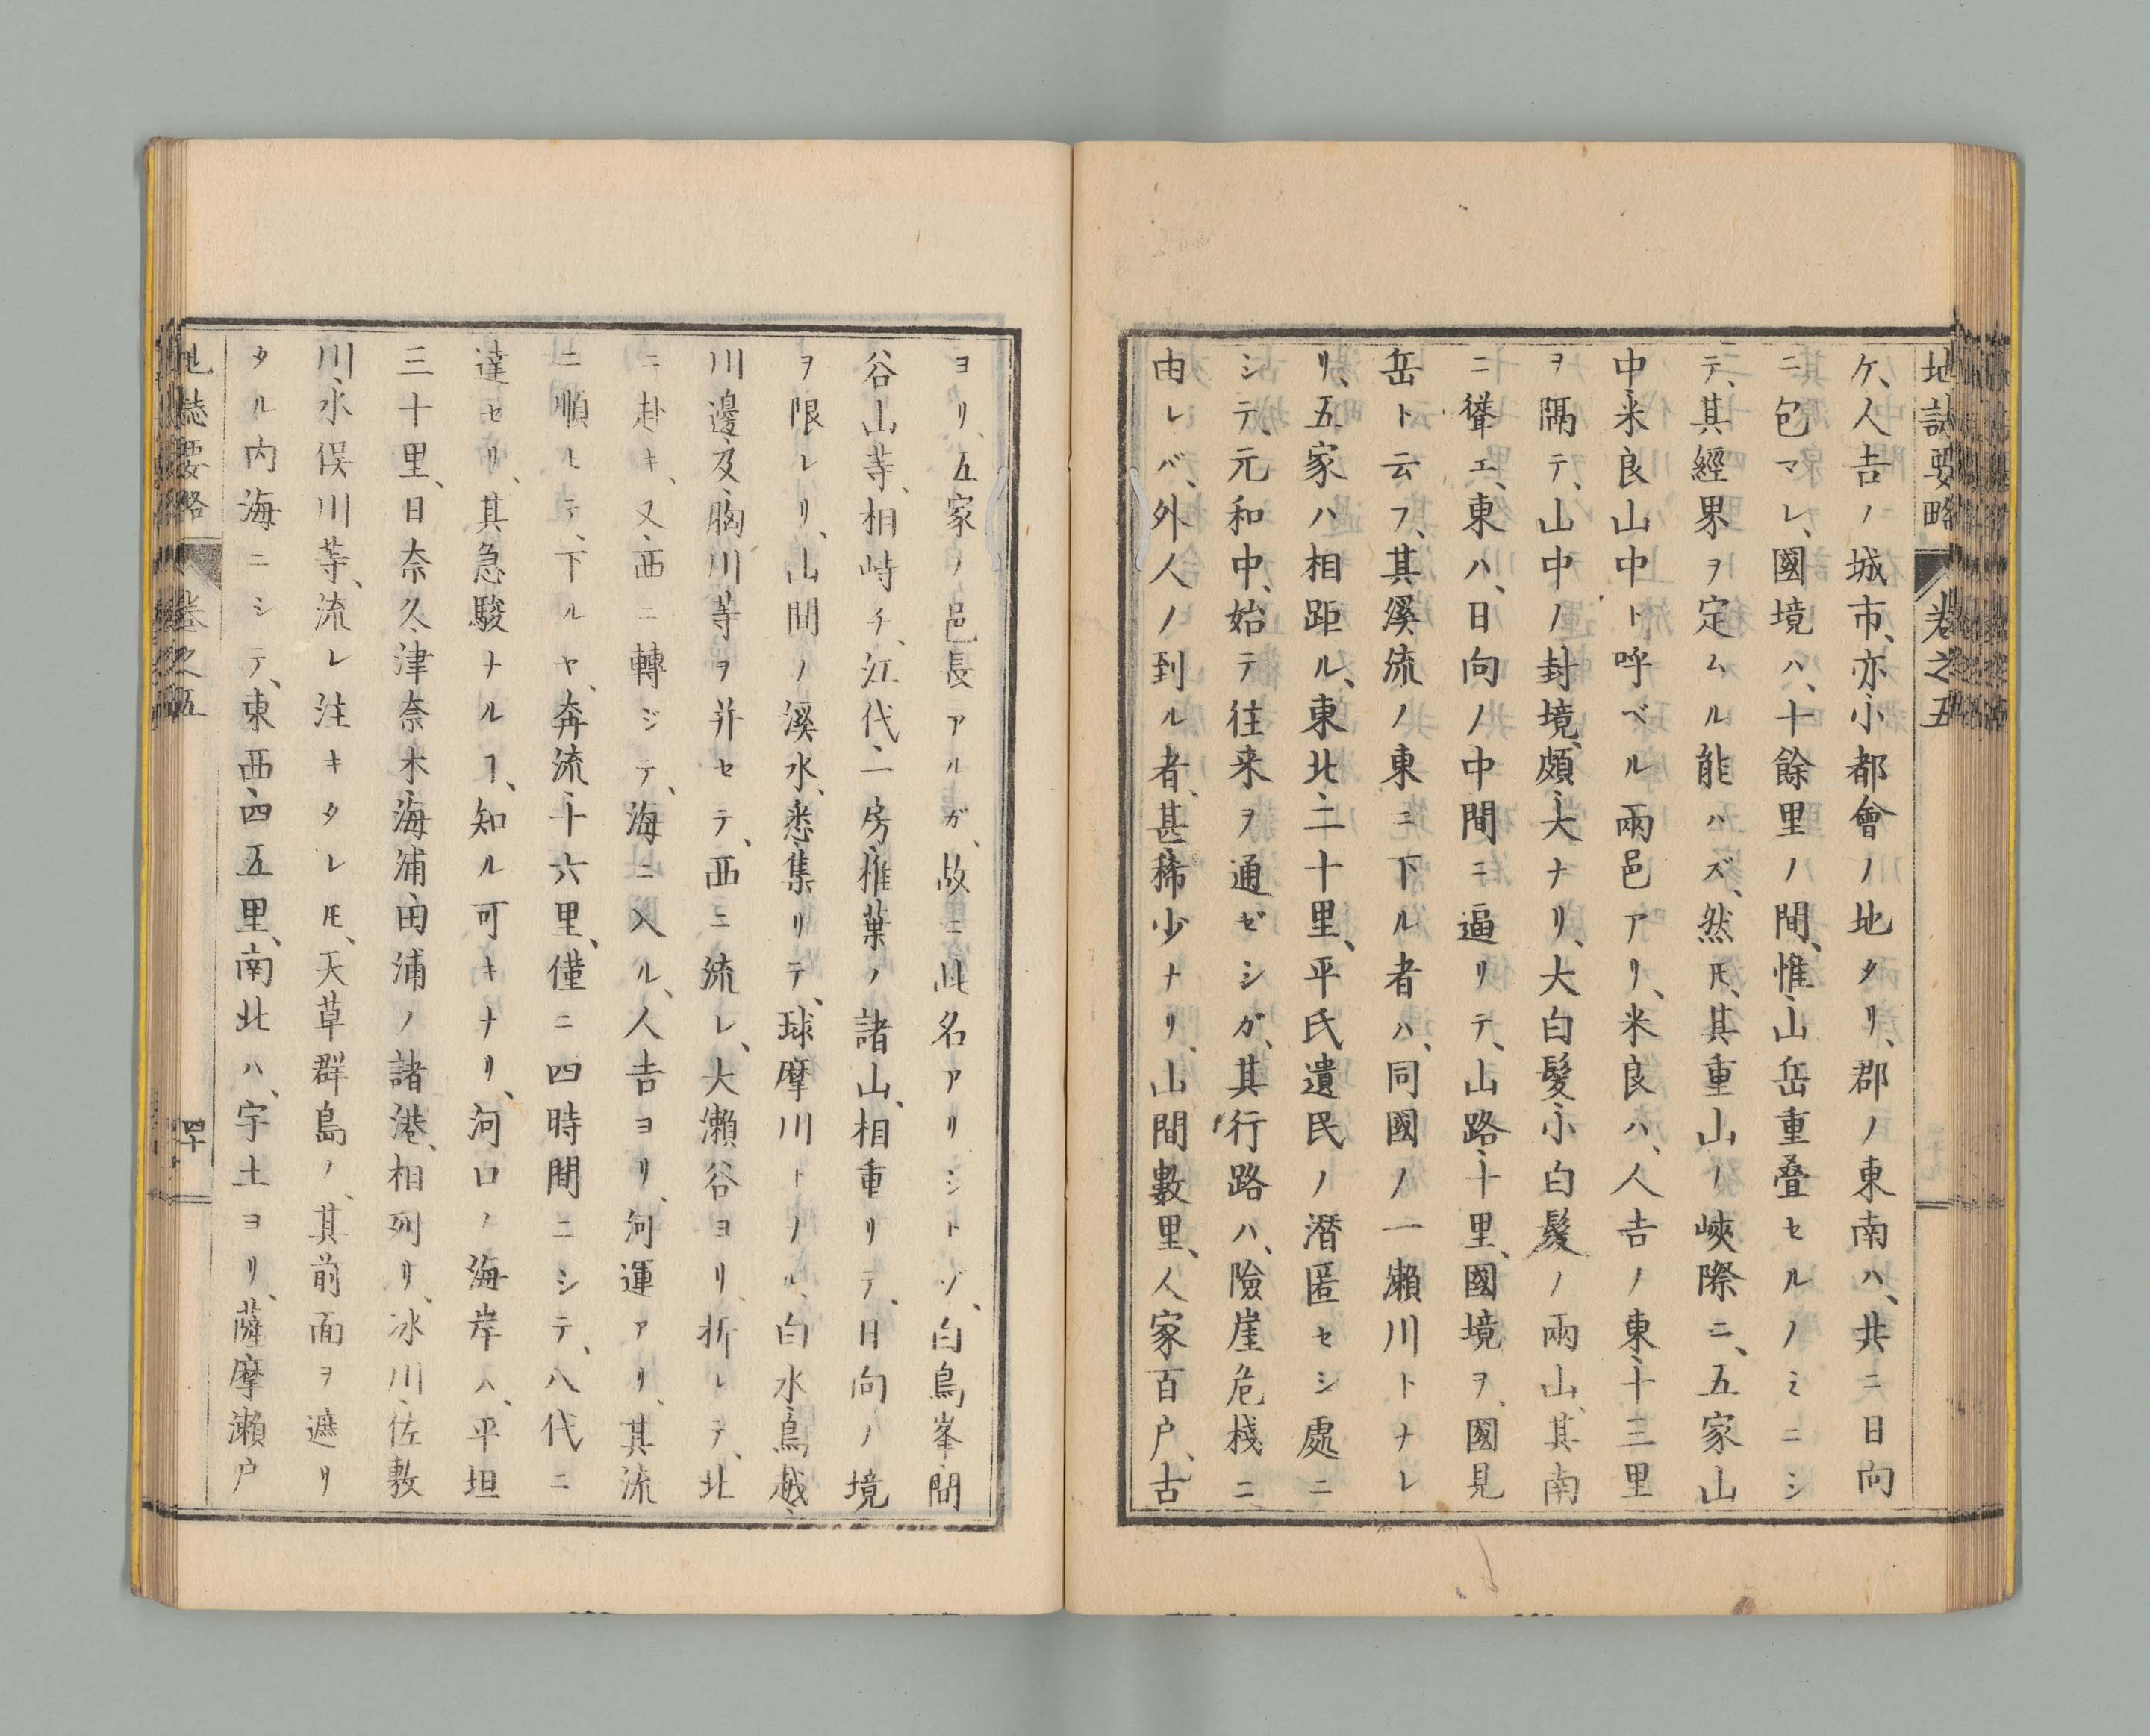 地誌要略 卷之五
ケ、人吉ノ城市、亦小都會ノ地タリ、郡ノ東南ハ、共ニ日向
ニ包マレ、國境ハ、十餘里ノ間、惟山岳重疊セルノミニシ
テ、其經界ヲ定ムル能ハズ、然𪜈、其重山ノ峽際ニ、五家山
中、米良山中ト呼ベル兩邑アリ、米良ハ、人吉ノ東、十三里
ヲ隔テ、山中ノ封境、頗大ナリ、大白髮、小白髮ノ兩山、其南
ニ聳エ、東ハ、日向ノ中間ニ逼リテ、山路十里、國境ヲ、國見
岳ト云フ、其溪流ノ東ニ下ル者ハ、同國ノ一瀨川トナレ
リ、五家ハ相距ル、東北、二十里、平氏遺民ノ潛匿セシ處ニ
シテ、元和中、始テ往來ヲ通ゼシガ、其行路ハ、險崖危棧ニ
由レバ、外人ノ到ル者、甚稀少ナリ、山間數里、人家百户、古
ヨリ、五家ノ邑長アルガ、故ニ此名アリシトゾ、白鳥峯、間
谷山等、相峙チ、江代、二房、椎葉ノ諸山、相重リテ、日向ノ境
ヲ限レリ、山間ノ溪水、悉集リテ、球摩川トノル、白水、鳥越、
川邊、及、胸川等ヲ并セテ、西ニ流レ、大瀨谷ヨリ、折レテ、北
ニ赴キ、又、西ニ轉ジテ、海ニ入ル、人吉ヨリ、河運アリ、其流
ニ順ヒテ、下ルヤ、奔流、十六里、僅ニ四時間ニシテ、八代ニ
達セリ、其急駿ナルヿ、知ル可キナリ、河口ノ海岸ハ、平坦
三十里、日奈久、津奈木、海浦、田浦ノ諸港、相列リ、冰川、佐敷
川、水俣川等、流レ注キタレ𪜈、天草群島ノ、其前面ヲ遮リ
タル内海ニシテ、東西、四五里、南北ハ、宇土ヨリ、薩摩瀨户
地誌要略 卷之五 四十